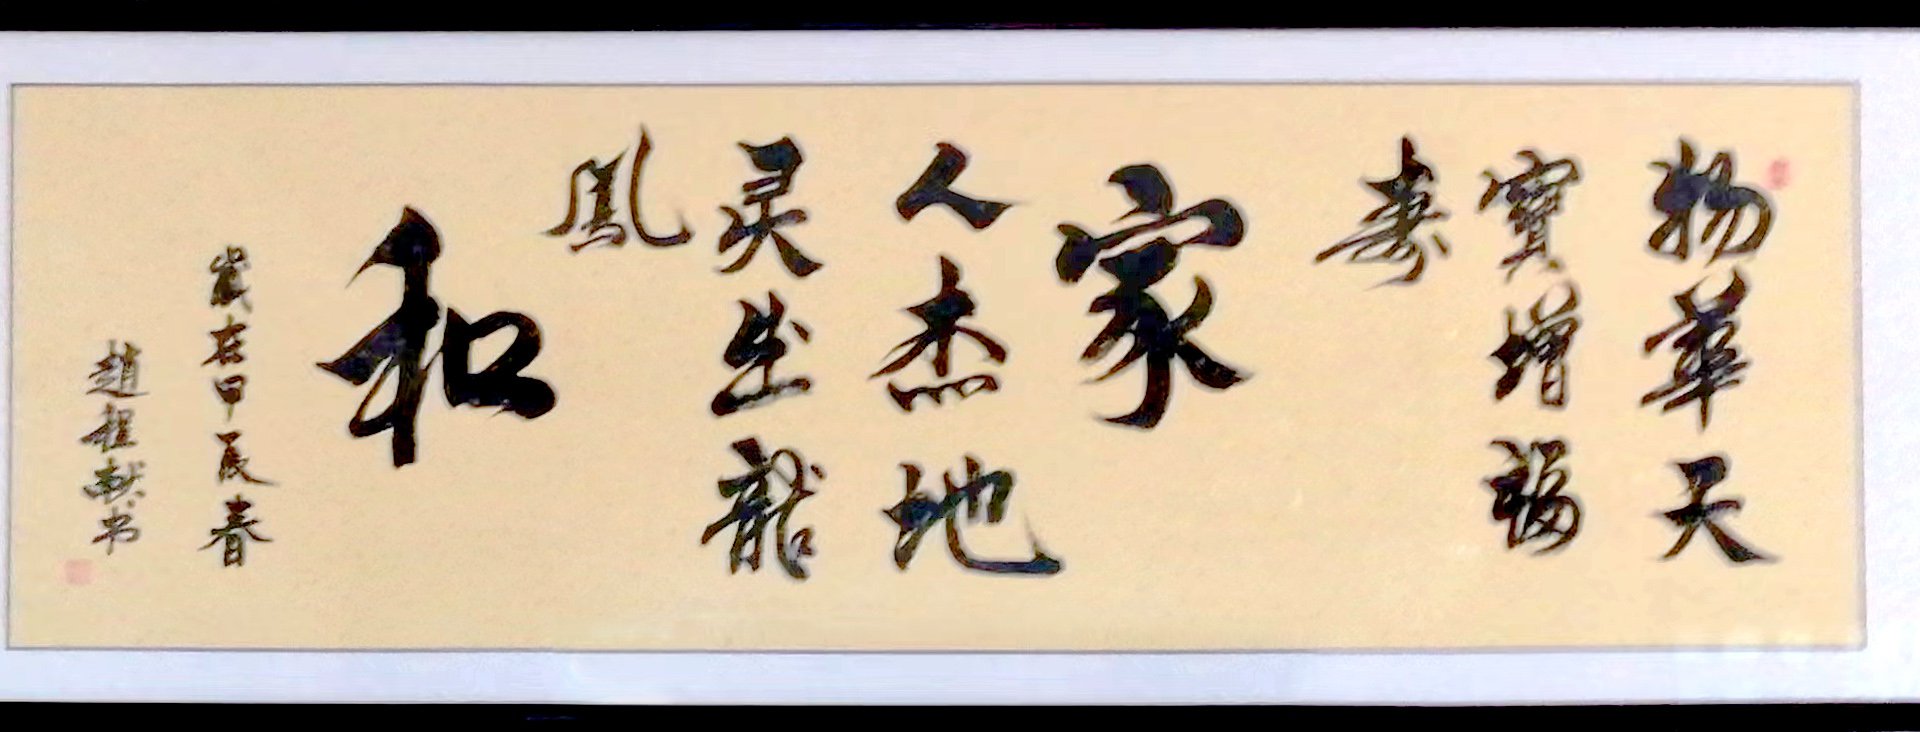 物華天
寶增福
壽
家
人杰地
灵出龍
鳳
和
歲在甲辰春
趙程献书